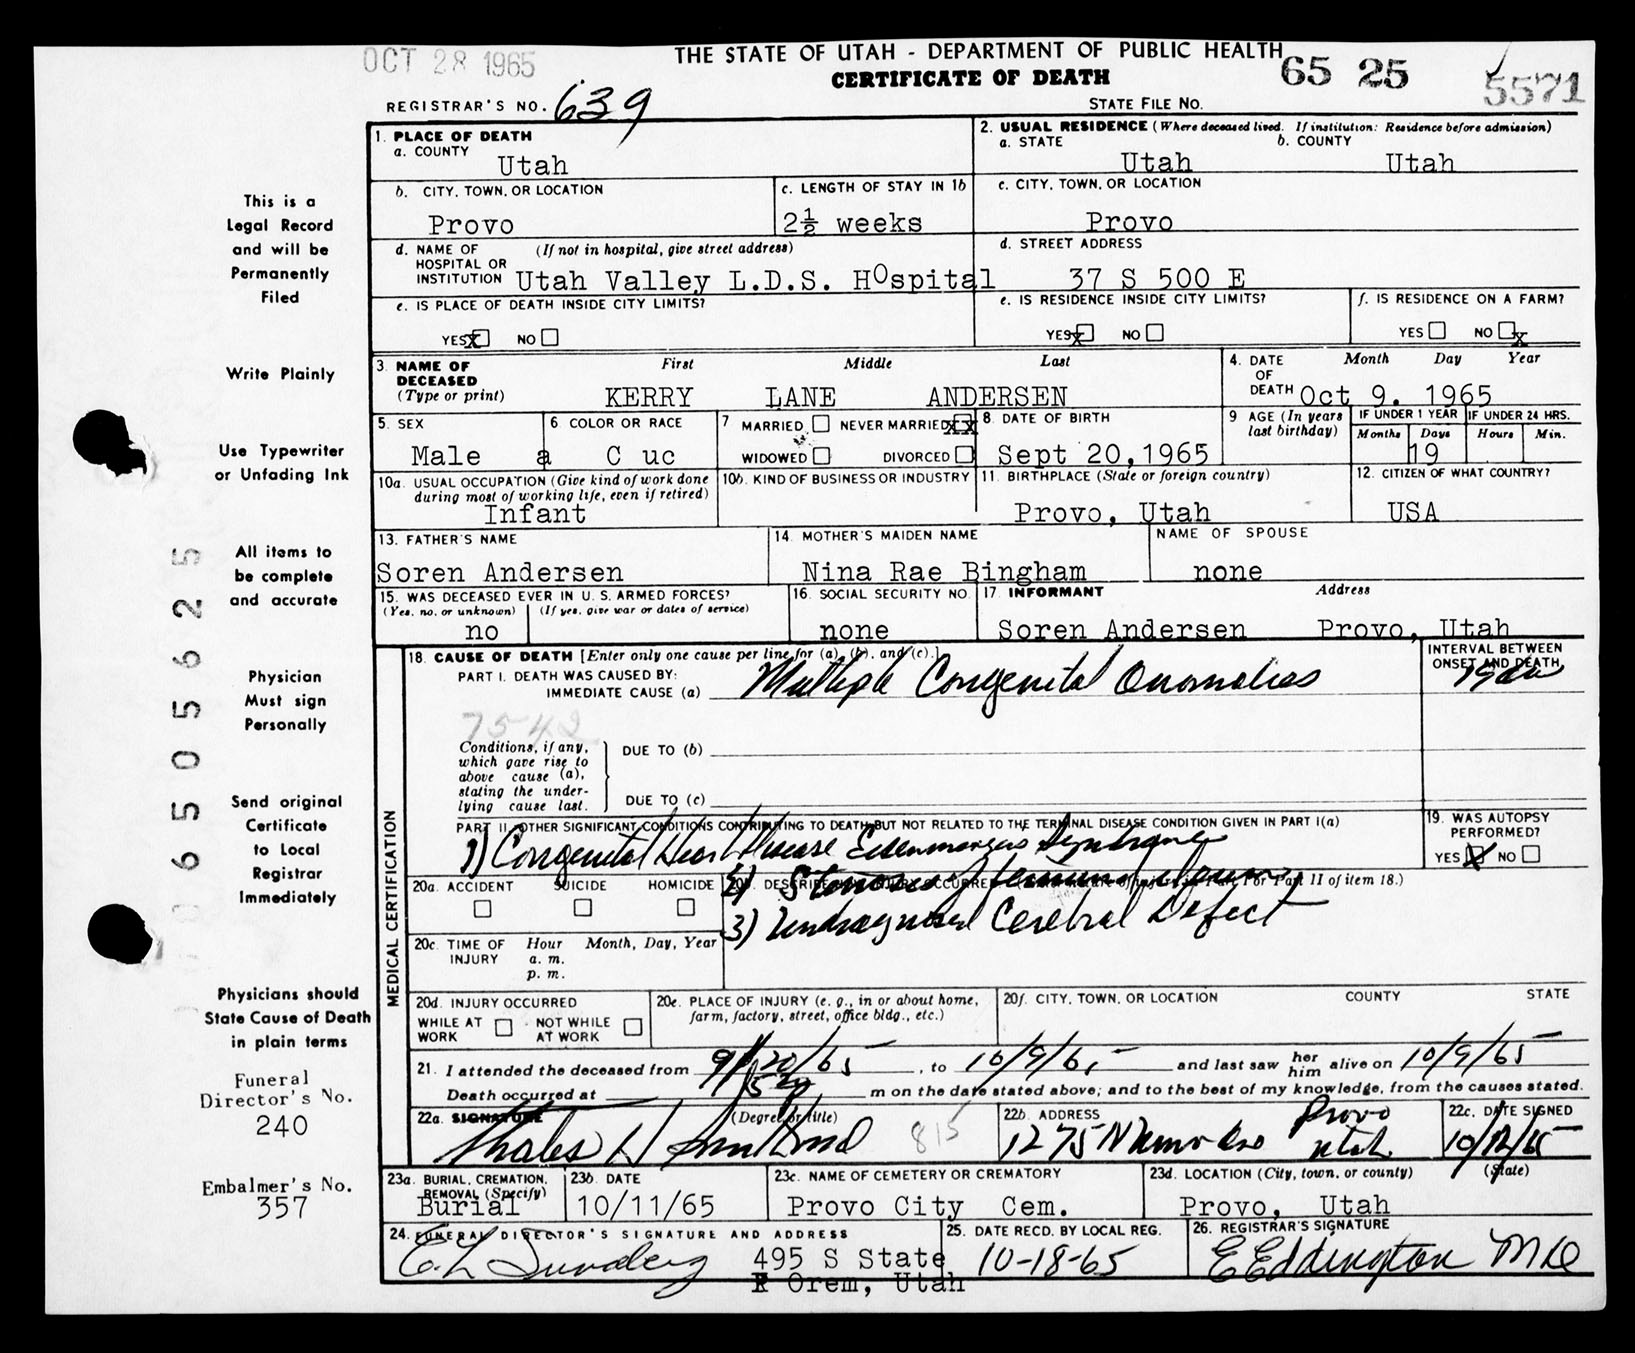 OCT 28 1965
THE STATE OF UTAH - DEPARTMENT OF PUBLIC HEALTH
CERTIFICATE OF DEATH
65 25 5571
REGISTRAR'S NO. 639
STATE FILE NO.
1. PLACE OF DEATH
a. COUNTY
Utah
2. USUAL RESIDENCE (Where deceased lived. If institution: Residence before admission)
a. STATE b. COUNTY
Utah Utah
b. CITY, TOWN, OR LOCATION
Provo
c. LENGTH OF STAY IN 1b
2½ weeks
c. CITY, TOWN, OR LOCATION
Provo
d. NAME OF (If not in hospital, give street address)
HOSPITAL OR
INSTITUTION Utah Valley L.D.S. HOspital
d. STREET ADDRESS
37 S 500 E
e. IS PLACE OF DEATH INSIDE CITY LIMITS?
YES X NO
e. IS RESIDENCE INSIDE CITY LIMITS?
YES X NO
f. IS RESIDENCE ON A FARM?
YES NO X
3. NAME OF First Middle Last
DECEASED
(Type or print) KERRY LANE ANDERSEN
4. DATE Month Day Year
OF
DEATH Oct 9. 1965
5. SEX
Male
6. COLOR OR RACE
a C uc
7 MARRIED NEVER MARRIED XX
WIDOWED DIVORCED
8 DATE OF BIRTH
Sept 20,1965
9 AGE (In years
last birthday)
IF UNDER 1 YEAR IF UNDER 24 HRS.
Months Days Hours Min.
19
10a. USUAL OCCUPATION (Give kind of work done
during most of working life, even if retired)
Infant
10b. KIND OF BUSINESS OR INDUSTRY
11. BIRTHPLACE (State or foreign country)
Provo, Utah
12. CITIZEN OF WHAT COUNTRY?
USA
13. FATHER'S NAME
Soren Andersen
14. MOTHER'S MAIDEN NAME
Nina Rae Bingham
NAME OF SPOUSE
none
15. WAS DECEASED EVER IN U. S. ARMED FORCES?
(Yes, no, or unknown) (If yes, give war or dates of service)
no
16. SOCIAL SECURITY NO.
none
17. INFORMANT Address
Soren Andersen Provo, Utah
18. CAUSE OF DEATH [Enter only one cause per line for (a), (b), and (c).]
PART I. DEATH WAS CAUSED BY:
IMMEDIATE CAUSE (a) Multiple Congenital Anomalies
INTERVAL BETWEEN
ONSET AND DEATH
7542
Conditions, if any,
which gave rise to
above cause (a),
stating the under-
lying cause last.
DUE TO (b)
DUE TO (c)
PART II. OTHER SIGNIFICANT CONDITIONS CONTRIBUTING TO DEATH BUT NOT RELATED TO THE TERMINAL DISEASE CONDITION GIVEN IN PART I(a)
1) Congenital Heart Disease Syndrome
2) Stenosis of
3) Undiagnosed Cerebral Defect
19. WAS AUTOPSY
PERFORMED?
YES X NO
20a. ACCIDENT SUICIDE HOMICIDE
20b. DESCRIBE HOW INJURY OCCURRED. Part I or Part II of item 18.)
20c. TIME OF Hour Month, Day, Year
INJURY a. m.
p. m.
20d. INJURY OCCURRED
WHILE AT WORK NOT WHILE AT WORK
20e. PLACE OF INJURY (e. g., in or about home,
farm, factory, street, office bldg., etc.)
20f. CITY, TOWN, OR LOCATION COUNTY STATE
21. I attended the deceased from 9/20/65, to 10/9/65 and last saw her him alive on 10/9/65
Death occurred at m on the date stated above; and to the best of my knowledge, from the causes stated.
22a. SIGNATURE (Degree or title)
815
22b. ADDRESS
Provo
Utah
22c. DATE SIGNED
10/12/65
23a. BURIAL, CREMATION,
REMOVAL (Specify)
Burial
23b. DATE
10/11/65
23c. NAME OF CEMETERY OR CREMATORY
Provo City Cem.
23d. LOCATION (City, town, or county) (State)
Provo, Utah
24. FUNERAL DIRECTOR'S SIGNATURE AND ADDRESS
495 S State
Orem, Utah
25. DATE RECD. BY LOCAL REG.
10-18-65
26. REGISTRAR'S SIGNATURE
E Eddington MD
MEDICAL CERTIFICATION
This is a
Legal Record
and will be
Permanently
Filed
Write Plainly
Use Typewriter
or Unfading Ink
All items to
be complete
and accurate
Physician
Must sign
Personally
Send original
Certificate
to Local
Registrar
Immediately
Physicians should
State Cause of Death
in plain terms
Funeral
Director's No.
240
Embalmer's No.
357
0 6 5 0 5 6 2 5